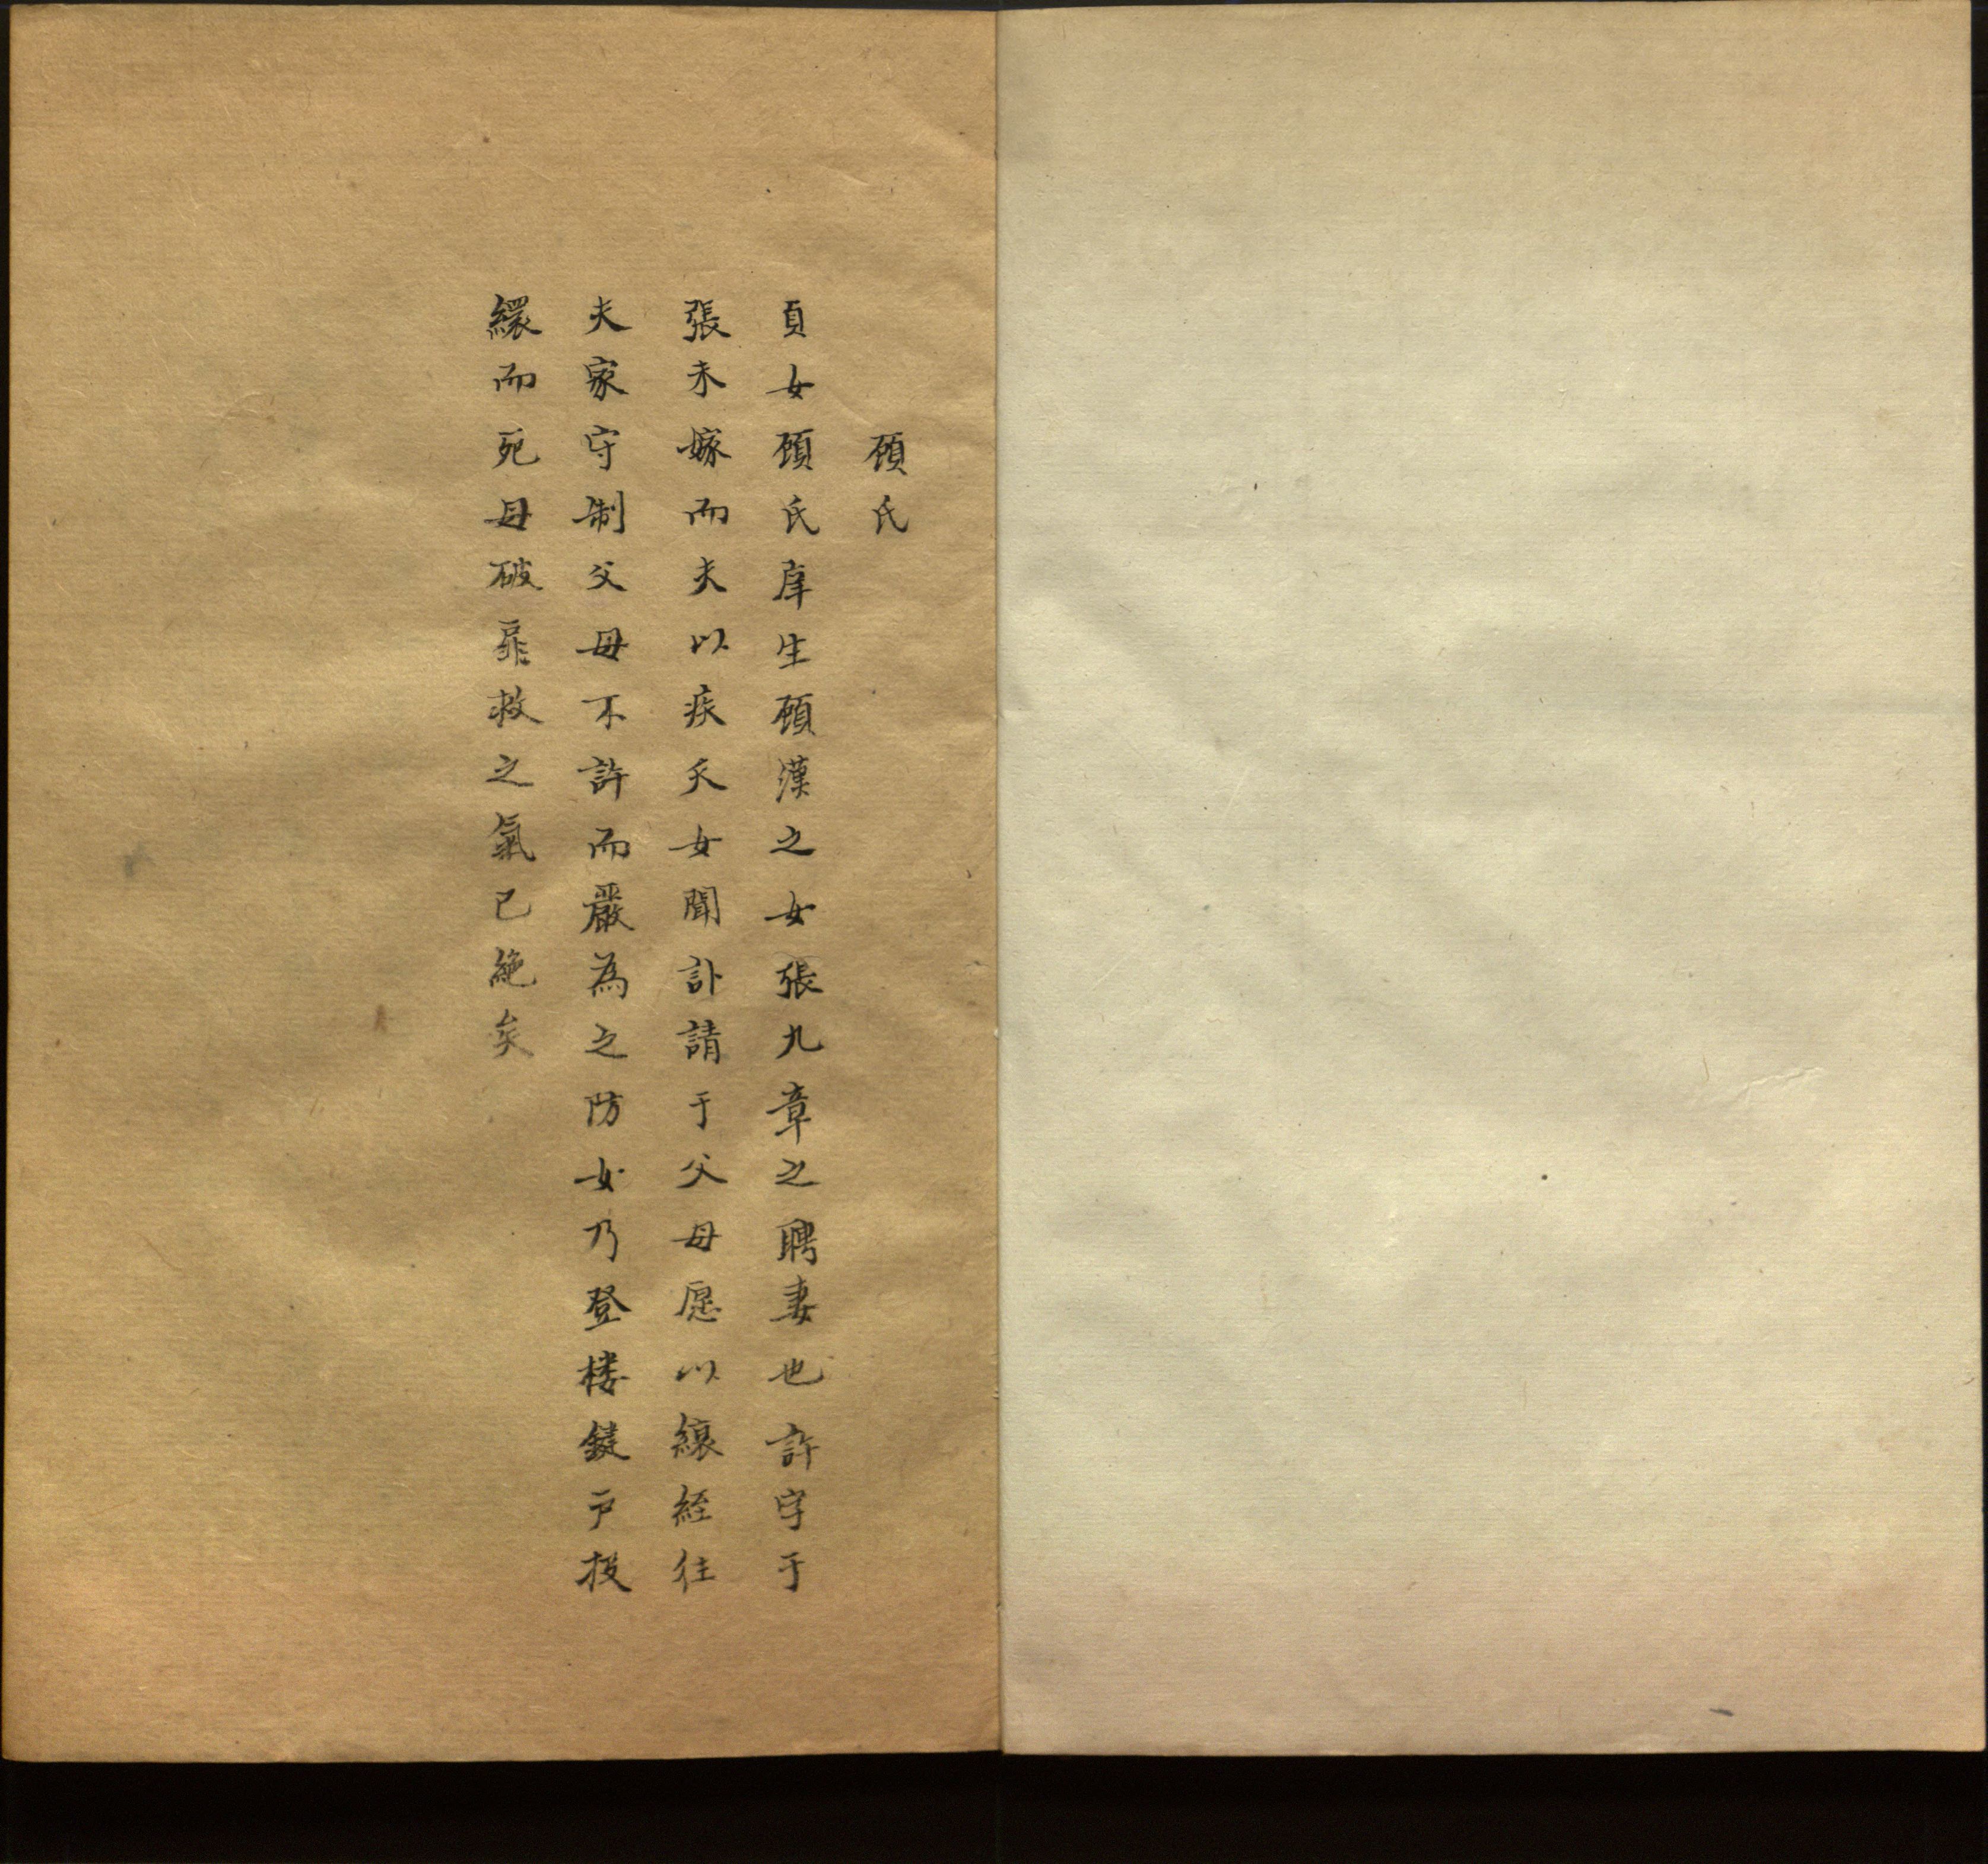 顧氏
貞女顧氏庠生顧漢之女張九章之聘妻也許字于
張未嫁而夫以疾夭女聞訃請于父母愿以縗絰往
夫家守制父母不許而嚴為之防女乃登楼鍵戶投
繯而死母破扉救之氣已絕矣